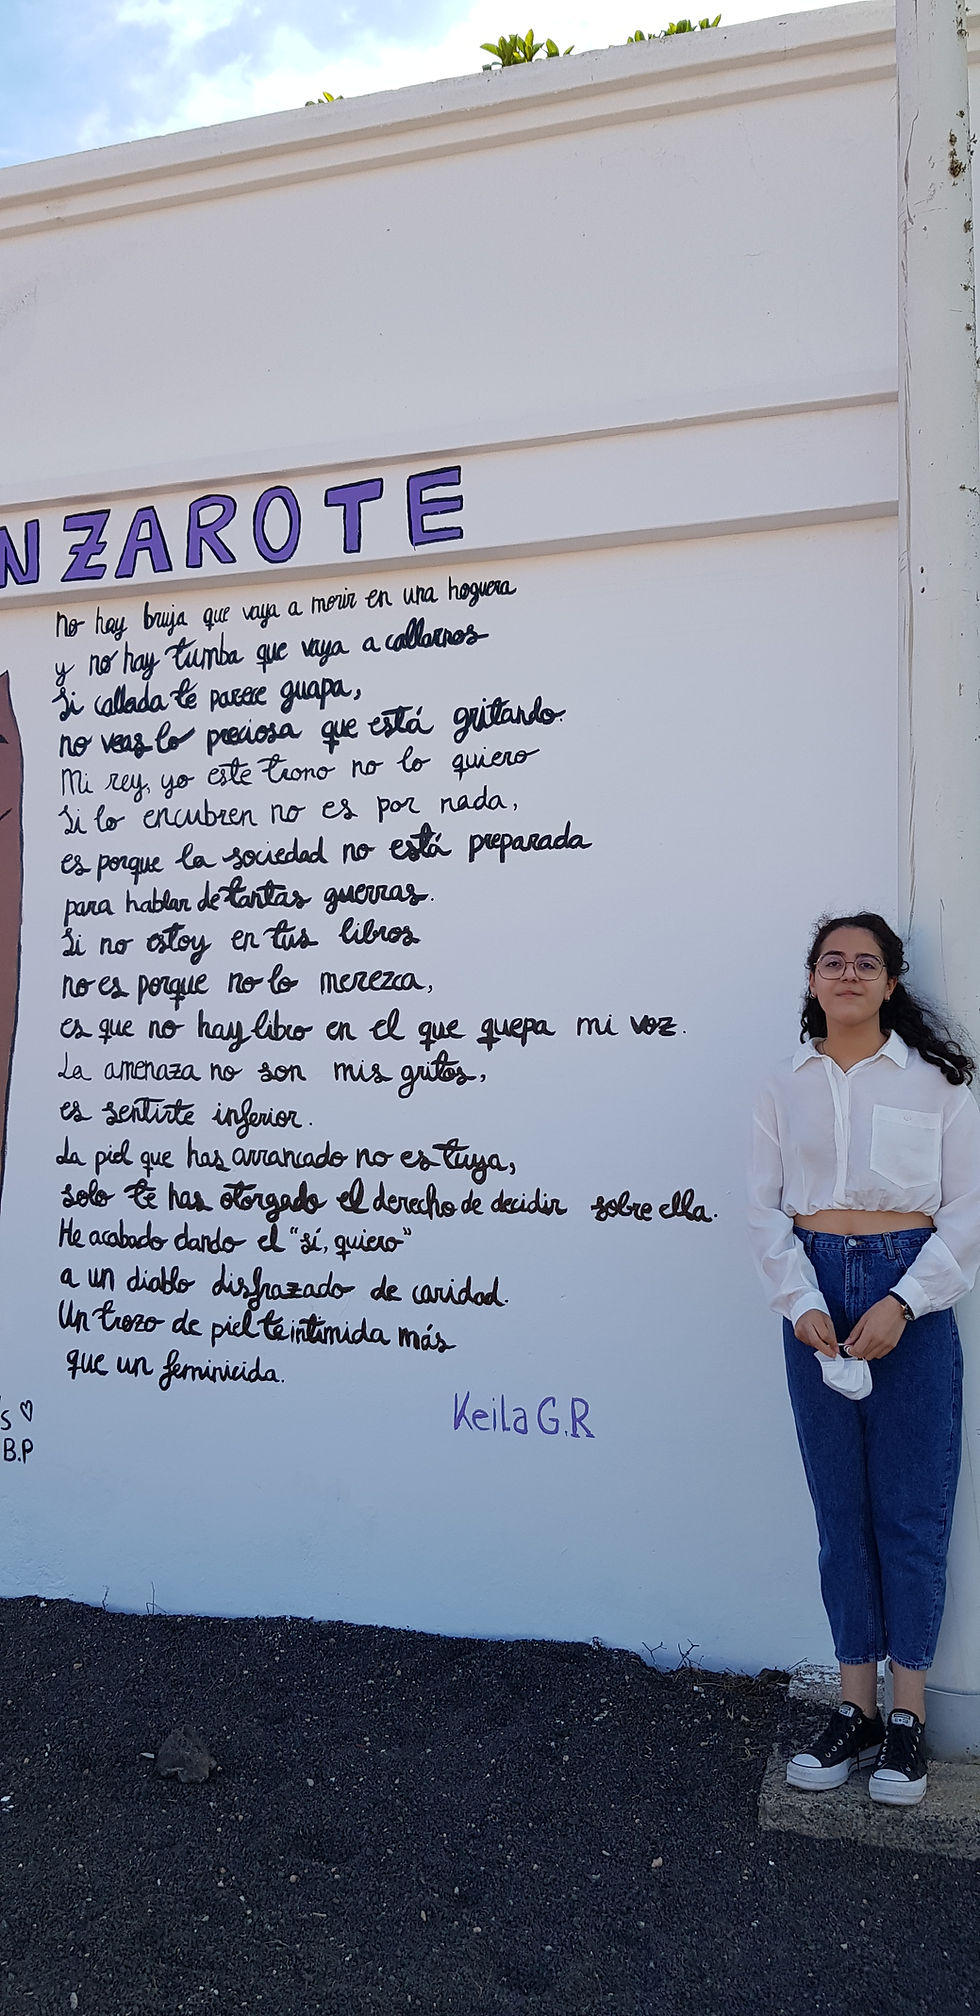 NZAROTE
No hay bruja que vaya a morir en una hoguera
y no hay tumba que vaya a callarnos
Si callada te parece guapa,
no veas lo preciosa que está gritando.
Mi rey, yo este trono no lo quiero
Si lo encubren no es por nada,
es porque la sociedad no está preparada
para hablar de tantas guerras.
Si no estoy en tus libros
no es porque no lo merezca,
es que no hay libro en el que quepa mi voz.
La amenaza no son mis gritos,
es sentirte inferior.
La piel que has arrancado no es tuya,
solo te has otorgado el derecho de decidir sobre ella.
He acabado dando el "sí, quiero"
a un diablo disfrazado de caridad.
Un trozo de piel te intimida más
que un feminicida.
Keila G.R
S ♡
B.P